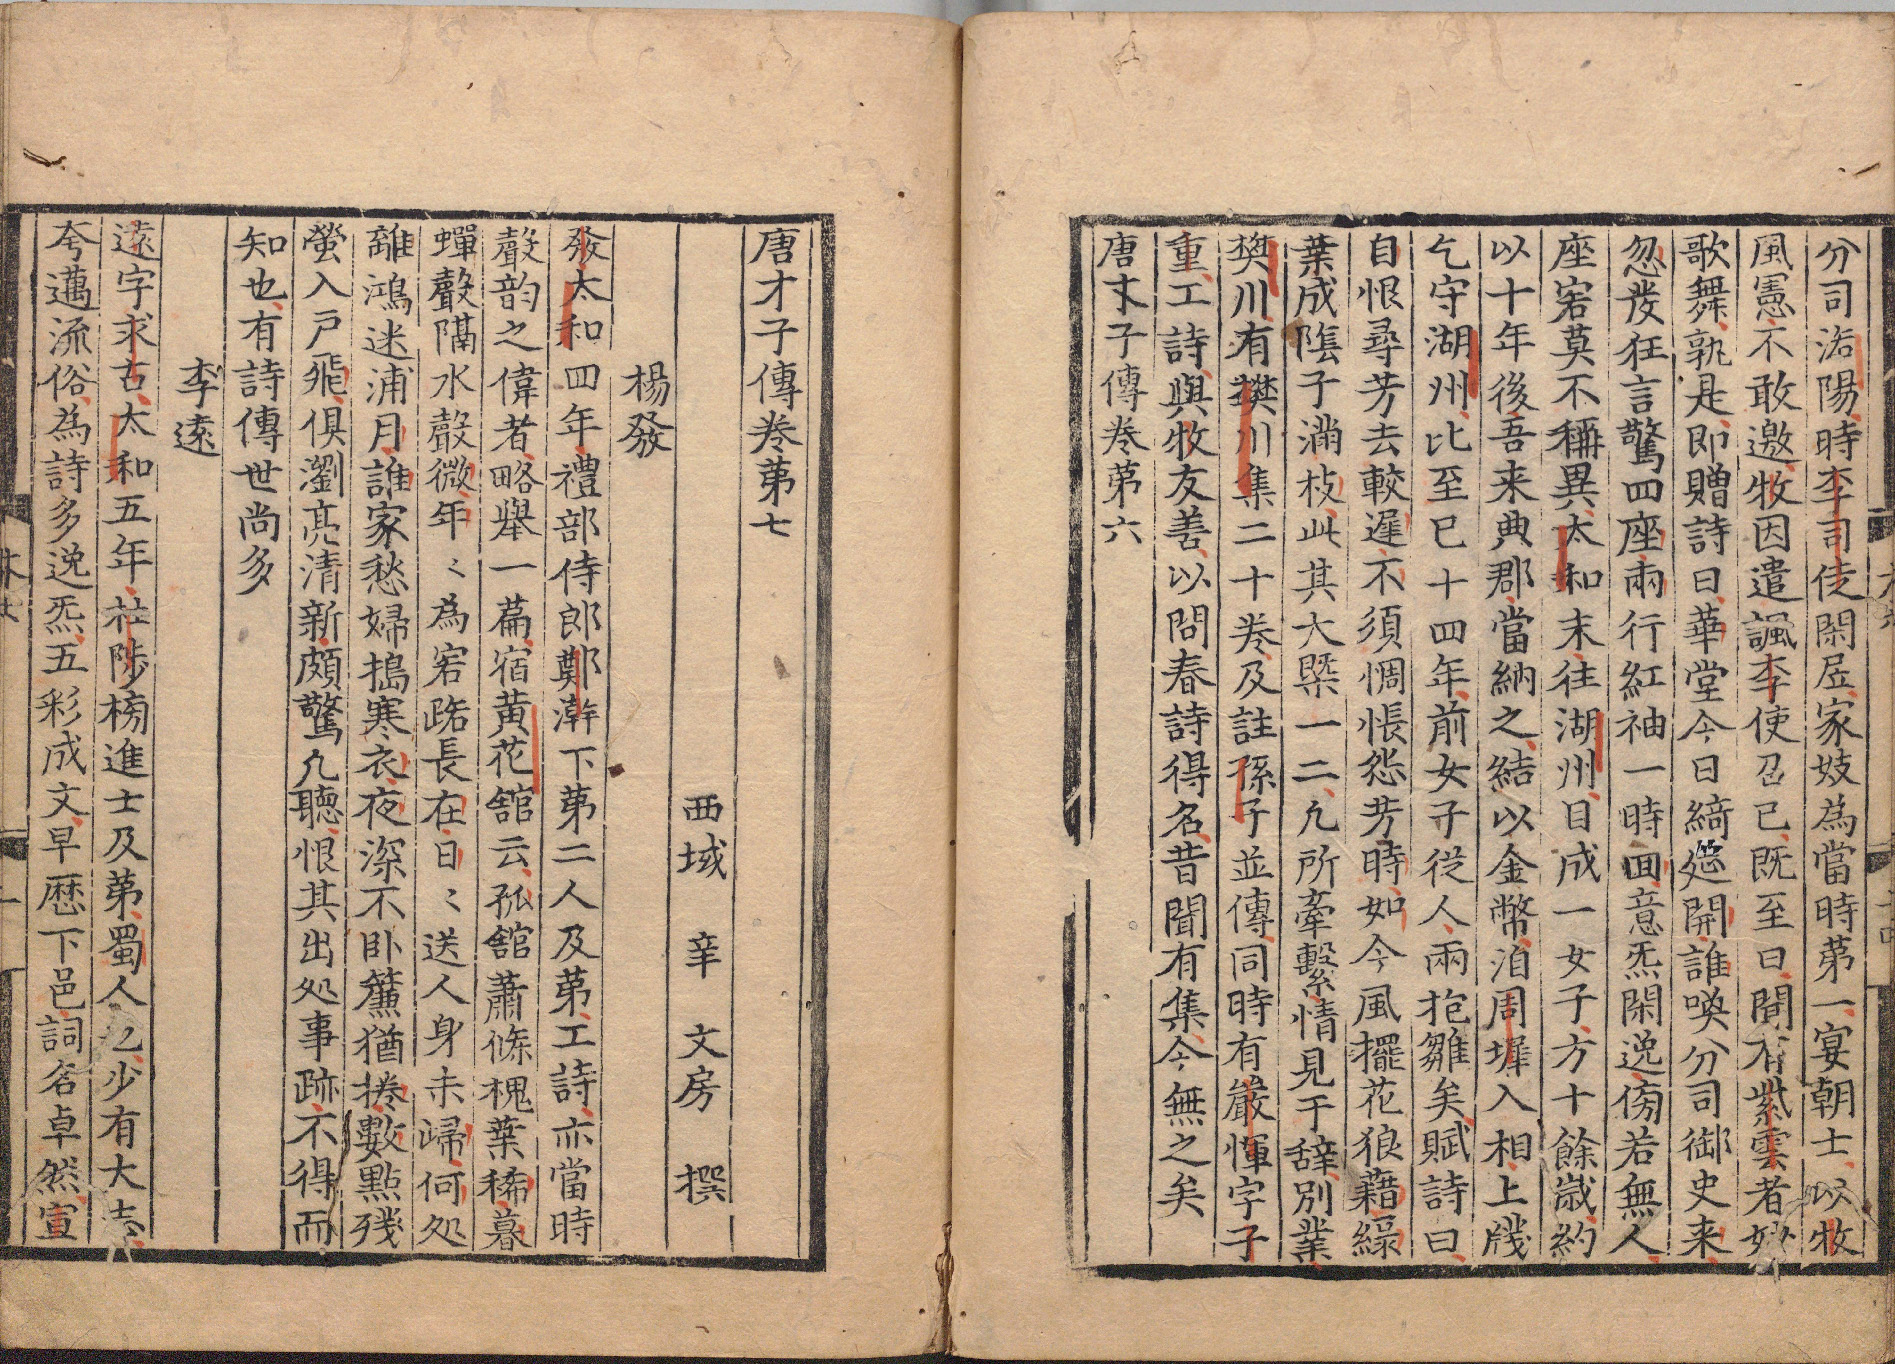 分司洛陽時李司徒閑居家妓為當時第一宴朝士以牧
風憲不敢邀牧因遣諷李使召已既至曰聞有紫雲者妙
歌舞孰是即贈詩曰華堂今日綺筵開誰喚分司御史来
忽發狂言驚四座兩行紅袖一時回意炁閑逸傍若無人
座客莫不稱異太和末往湖州目成一女子方十餘歳約
以十年後吾来典郡當納之結以金幣洎周墀入相上牋
乞守湖州比至已十四年前女子從人兩抱雛矣賦詩曰
自恨尋芳去較遲不須惆悵怨芳時如今風擺花狼藉緑
葉成隂子滿枝此其大槩一二凢所牽繫情見于辞別業
樊川有樊川集二十卷及註孫子並傳同時有嚴惲字子
重工詩與牧友善以問春詩得名昔聞有集今無之矣
唐才子傳卷第六
唐才子傳卷第七
西域 辛 文房 撰
楊發
發太和四年禮部侍郎鄭澣下第二人及第工詩亦當時
聲韵之偉者略舉一篇宿黄花舘云孤舘蕭條槐葉稀暮
蟬聲隔水聲微年〻為客路長在日〻送人身未歸何処
離鴻迷浦月誰家愁婦搗寒衣夜深不卧簾猶捲數點殘
螢入戸飛俱瀏亮清新頗驚凢聽恨其出処事跡不得而
知也有詩傳世尚多
李遠
遠字求古太和五年杜陟榜進士及第蜀人也少有大志
夸邁流俗為詩多逸炁五彩成文早歴下邑詞名卓然宣